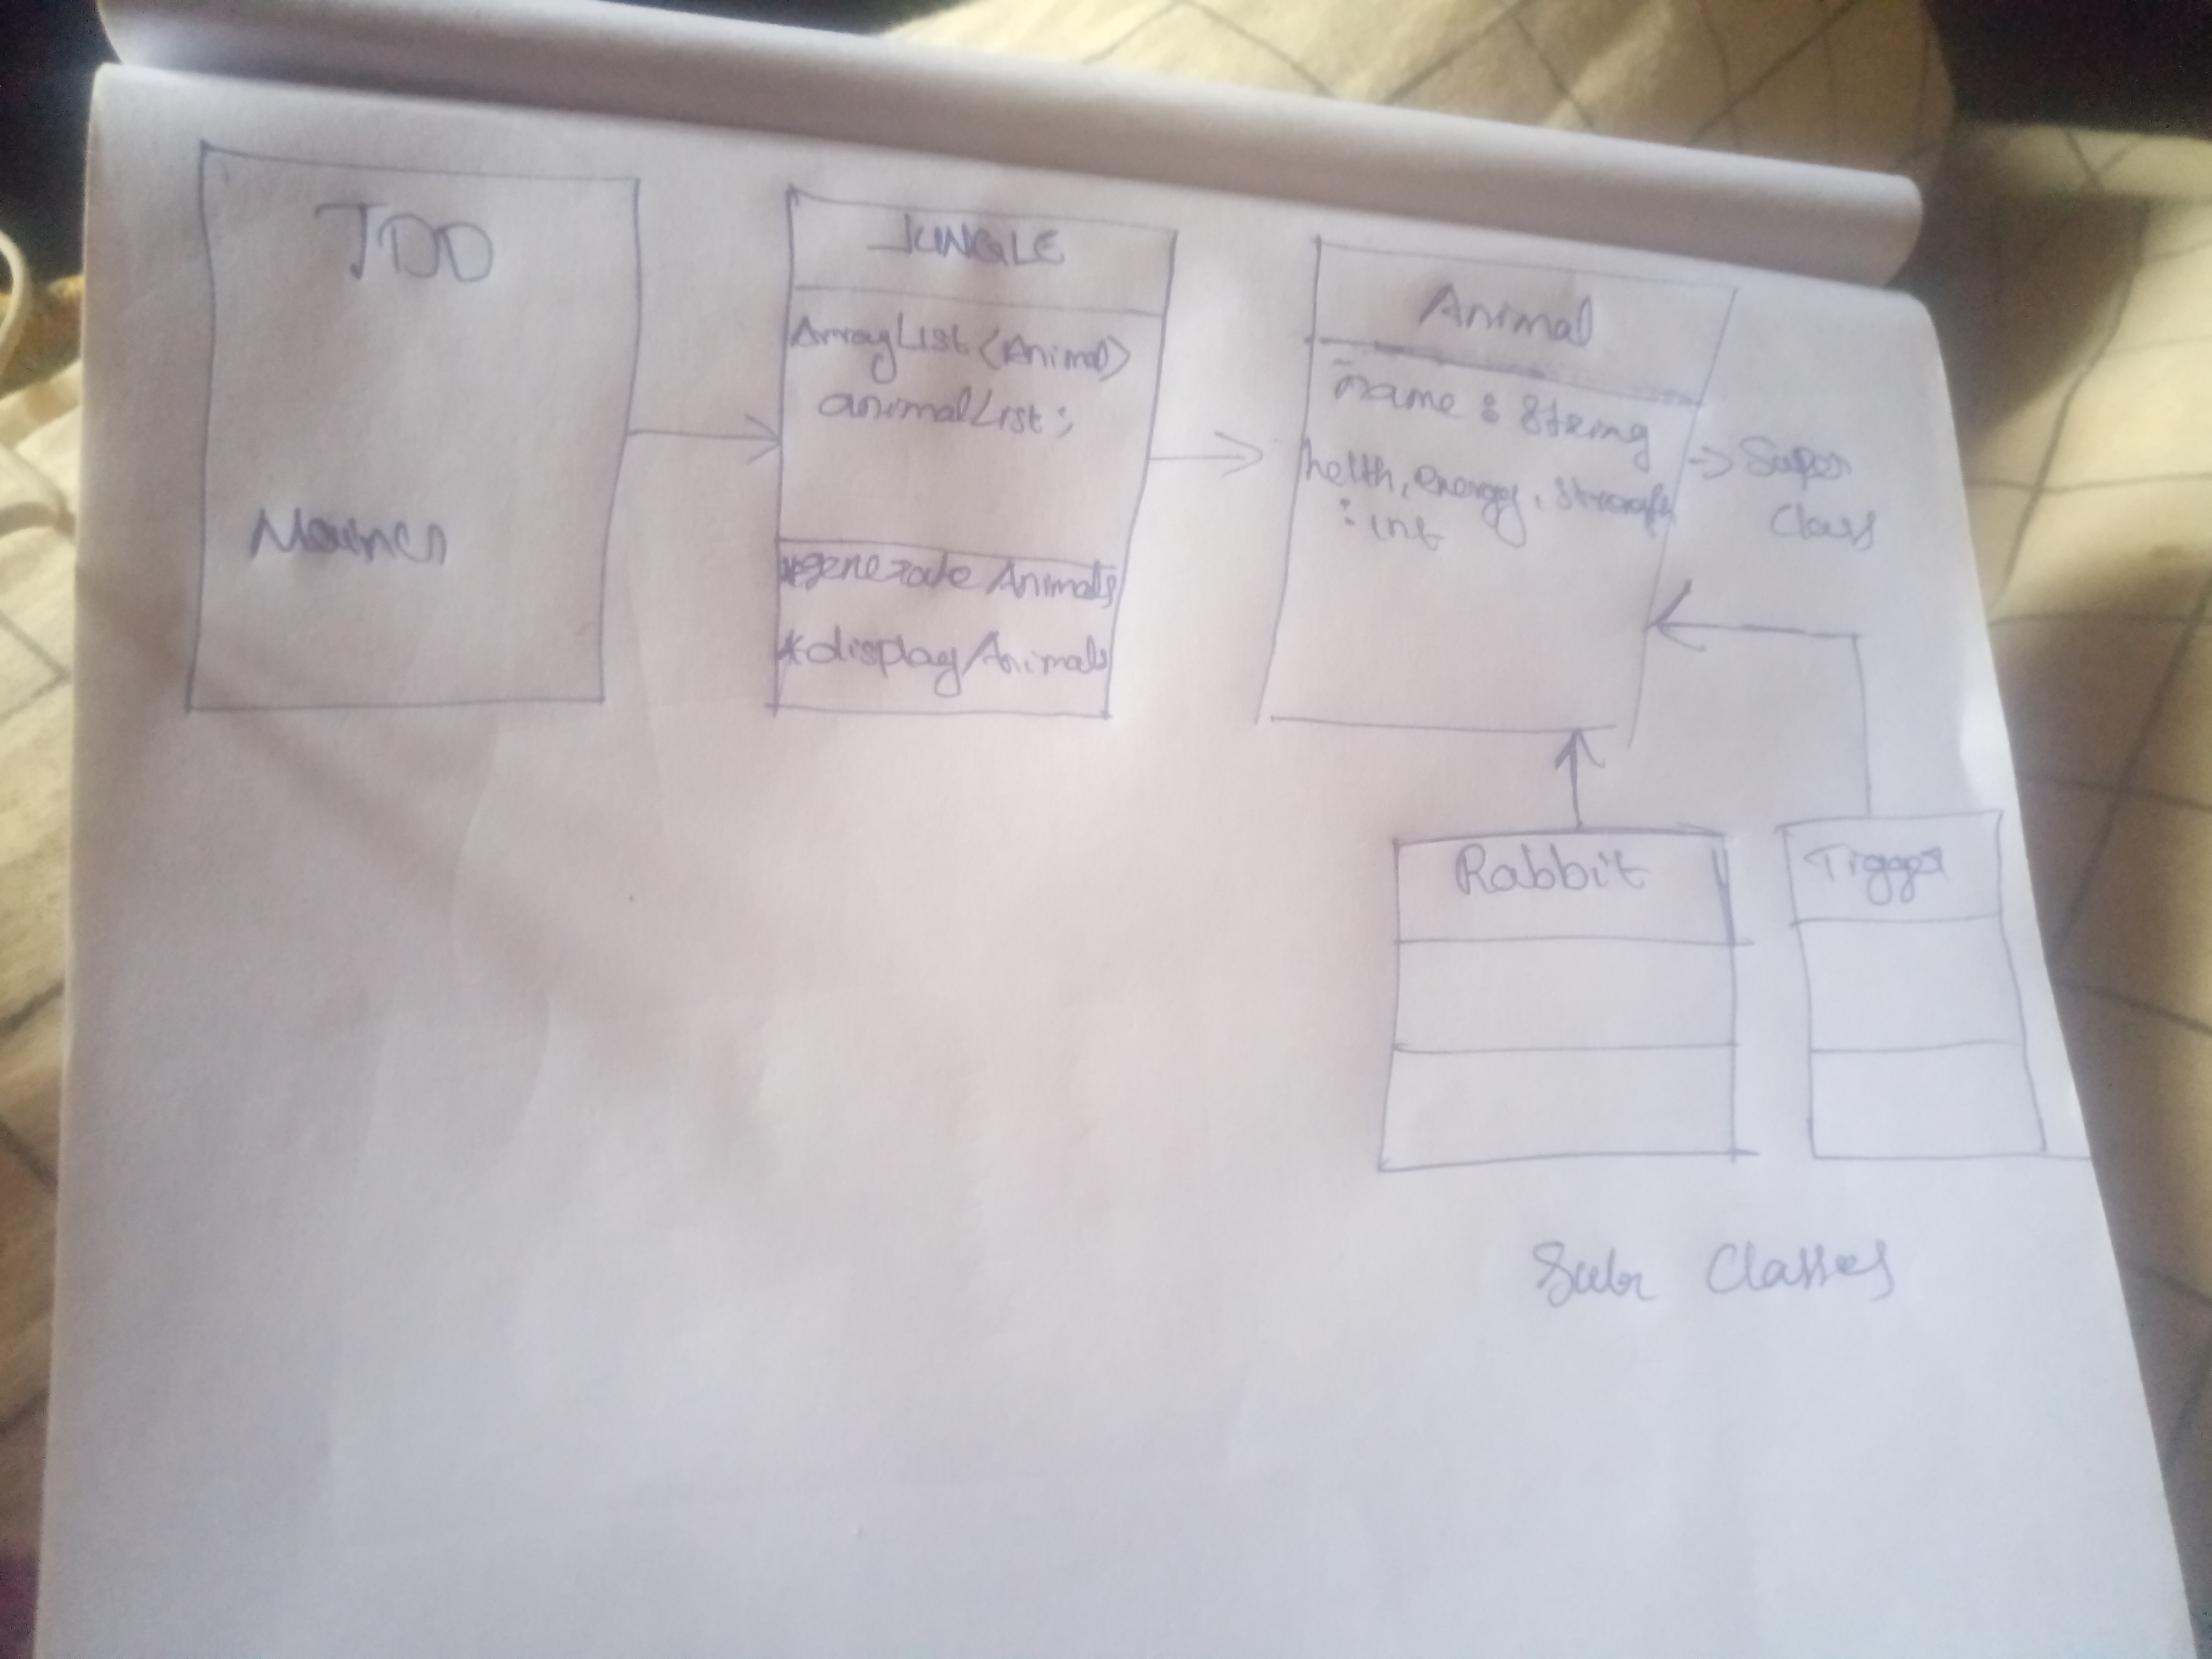 JDD
Main()
JUNGLE
ArrayList <Animal>
animalList;
*generate Animals
*displayAnimals
Animal
name : String
helth, energy,
: int
-> Super
Class
Rabbit
Tigger
Sub Classes